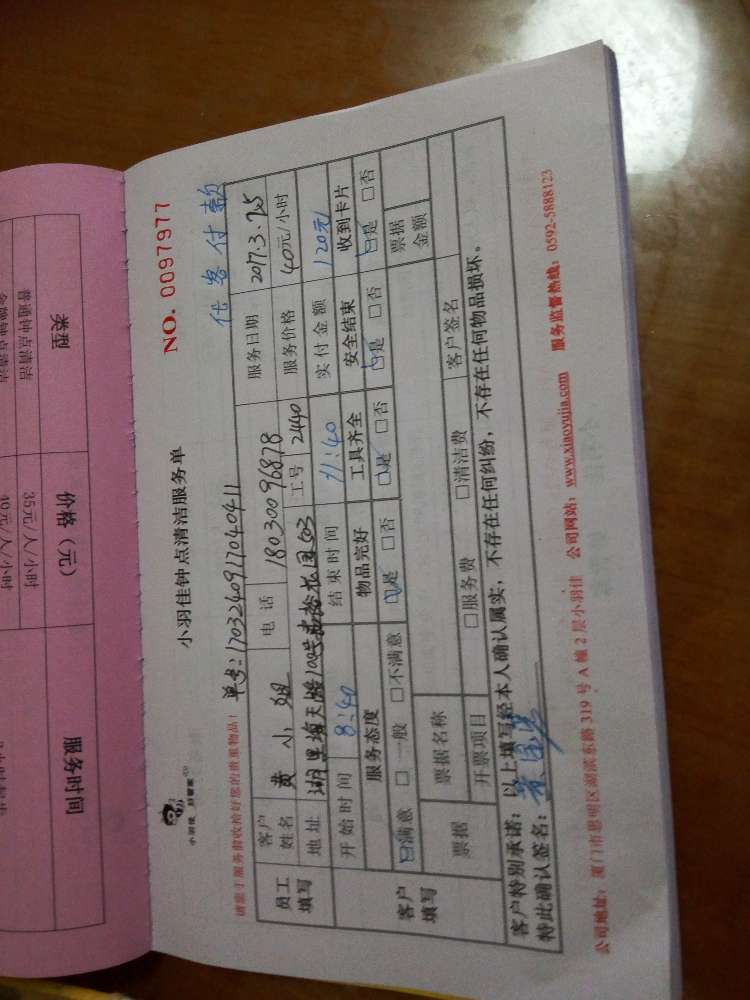 小羽佳 好管家
小羽佳钟点清洁服务单
NO. 0097977
请您于服务前收拾好您的贵重物品!
单号:1703240917040411
代客付款
员工填写
客户姓名 黄小姐 电话 18030096878 服务日期 2017.3.25
地址 工号 2440 服务价格 40元/小时
开始时间 8:40 结束时间 11:40 实付金额 120元
客户填写
服务态度 物品完好 工具齐全 安全结束 收到卡片
☑满意 □一般 □不满意 ☑是 □否 ☑是 □否 ☑是 □否 ☑是 □否
票据 票据名称 票据金额
开票项目 □服务费 □清洁费 客户签名
客户特别承诺: 以上填写经本人确认属实,不存在任何纠纷,不存在任何物品损坏。
特此确认签名:
公司地址:厦门市思明区湖滨东路 319 号 A 幢 2 层小羽佳 公司网站:www.xiaoyujia.com 服务监督热线:0592-5888123
类型 价格(元) 服务时间
普通钟点清洁 35元/人/小时